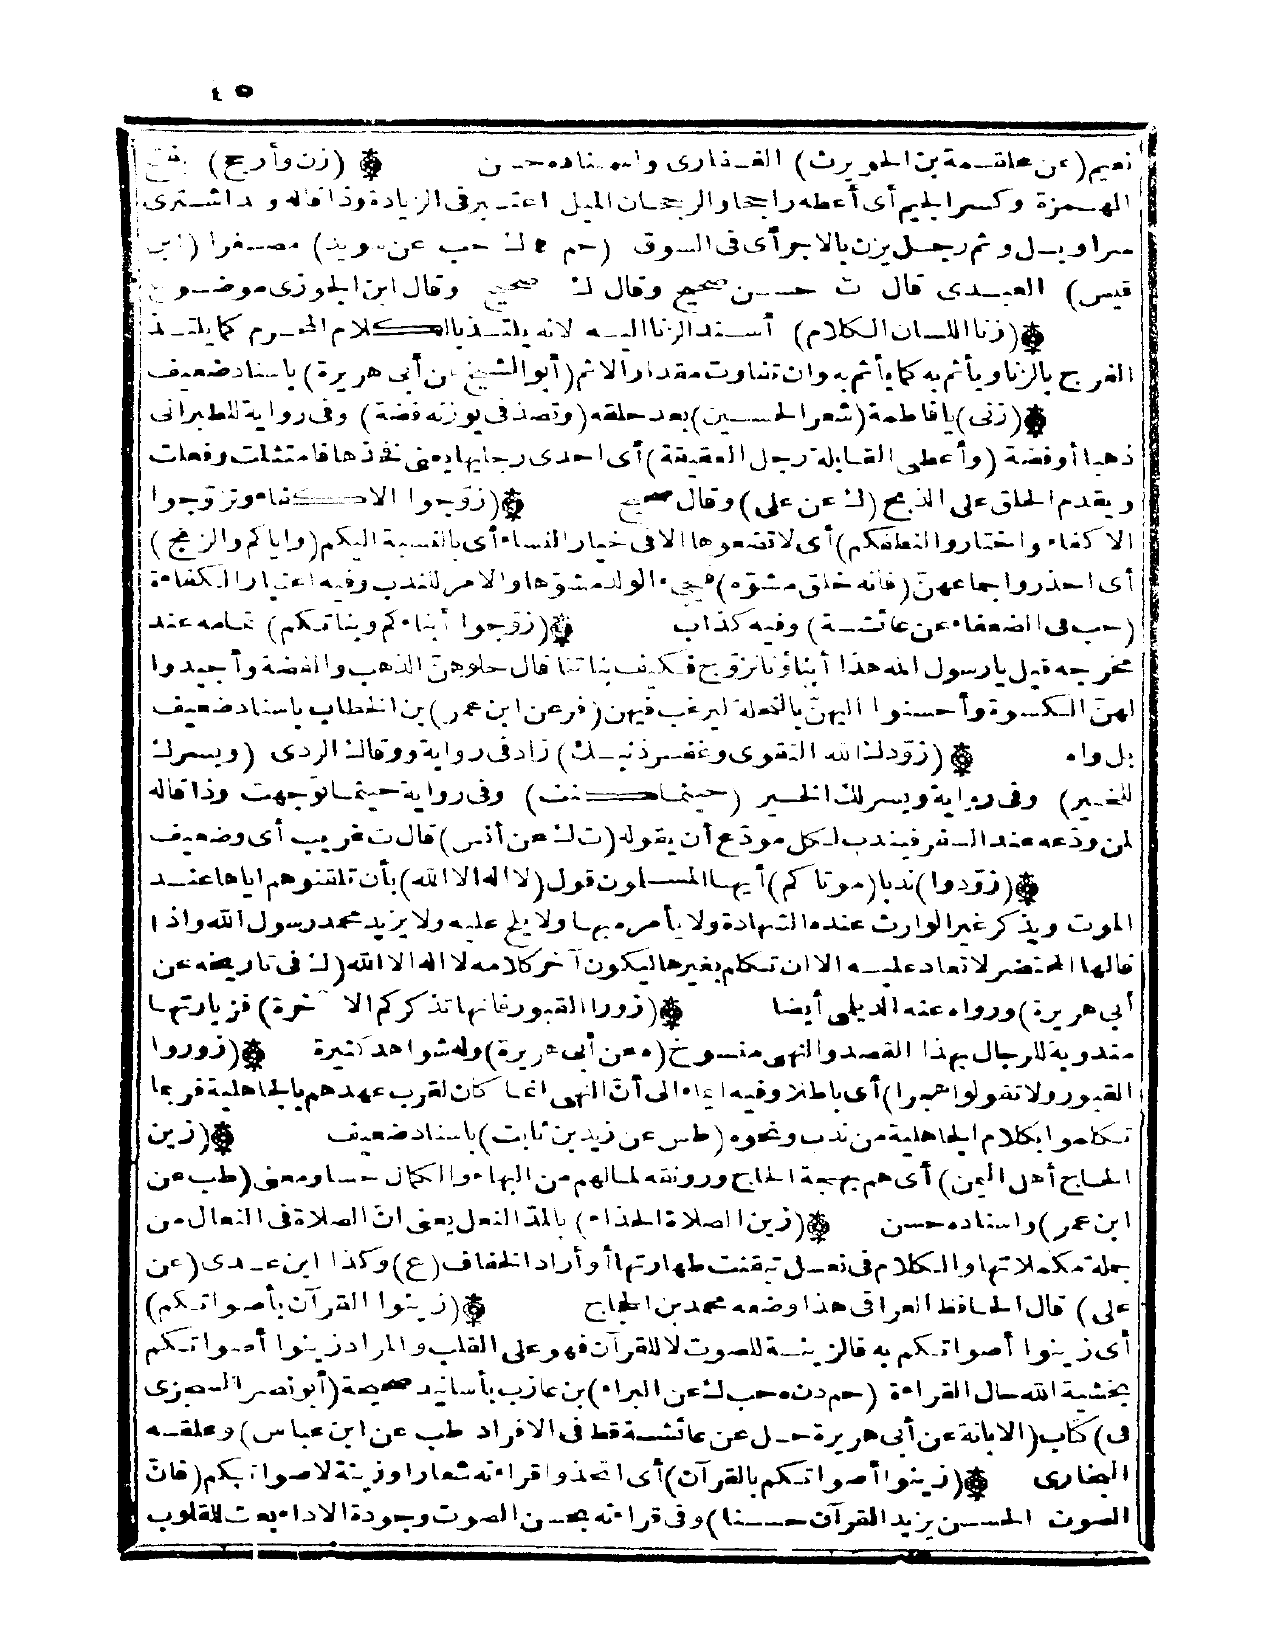 ٤٥
نعيم (عن علقمة بن الحويرث) الغفاري واسناده حسن ۞ (زن وأرجح) بفتح
الهمزة وكسر الجيم أى أعطه راجحا والرجحان الميل اعتبر فى الزيادة وذا قاله وقد اشترى
سراويل وثم رجل يزن بالاجر أى فى السوق (حم ٤ ك حب عن سويد) مصغرا (ابن
قيس) العبدى قال ت حسن صحيح وقال ك صحيح وقال ابن الجوزى موضوع
۞ (زنا اللسان الكلام) أسند الزنا اليه لانه يلتذ بالكلام المحرم كما يلتذ
الفرج بالزنا ويأثم به كما يأثم به وان تفاوت مقدار الاثم (أبو الشيخ عن أبى هريرة) باسناد ضعيف
۞ (زنى) يا فاطمة (شعر الحسين) بعد حلقه (وتصدقى بوزنه فضة) وفى رواية للطبرانى
ذهبا أو فضة (وأعطى القابلة رجل العقيقة) أى احدى رجليها يعنى فخذها فامتثلت وفعلت
ويقدم الحلق على الذبح (ك عن على) وقال صحيح ۞ (زوّجوا الاكفاء وتزوّجوا
الاكفاء واختاروا لنطفكم) أى لا تضعوها الا فى خيار النساء أى بالنسبة اليكم (واياكم والزنج)
أى احذروا جماعهنّ (فانه خلق مشوّه) فيجىء الولد مشوّها والامر للندب وفيه اعتبار الكفاءة
(حب فى الضعفاء عن عائشة) وفيه كذاب ۞ (زوّجوا أبناءكم وبناتكم) تمامه عند
مخرجه قيل يا رسول الله هذا أبناؤنا نزوّج فكيف بناتنا قال حلوهنّ الذهب والفضة وأجيدوا
لهنّ الكسوة وأحسنوا اليهنّ بالنحلة ليرغب فيهن (فر عن ابن عمر) بن الخطاب باسناد ضعيف
بل واه ۞ (زوّدك الله التقوى وغفر ذنبك) زاد فى رواية ووقاك الردى (ويسر لك
للخير) وفى رواية ويسر لك الخير (حيثما كنت) وفى رواية حيثما توجهت وذا قاله
لمن ودّعه عند السفر فيندب لكل مودّع أن يقوله (ت ك عن أنس) قال ت غريب أى وضعيف
۞ (زوّدوا) ندبا (موتاكم) أيها المسلمون قول (لا اله الا الله) بأن تلقنوهم اياها عند
الموت ويذكر غير الوارث عنده الشهادة ولا يأمره بها ولا يلح عليه ولا يزيد محمد رسول الله واذا
قالها المحتضر لا تعاد عليه الا ان تكلم بغيرها ليكون آخر كلامه لا اله الا الله (ك فى تاريخه عن
أبى هريرة) ورواه عنه الديلمى أيضا ۞ (زوروا القبور فانها تذكركم الآخرة) فزيارتها
مندوبة للرجال بهذا القصد والنهى منسوخ (ه عن أبى هريرة) وله شواهد كثيرة ۞ (زوروا
القبور ولا تقولوا هجرا) أى باطلا وفيه ايماء الى أنّ النهى انما كان لقرب عهدهم بالجاهلية فربما
تكلموا بكلام الجاهلية من ندب ونحوه (طس عن زيد بن ثابت) باسناد ضعيف ۞ (زين
الحاج أهل اليمن) أى هم بهجة الحاج ورونقه لما لهم من البهاء والكمال حسا ومعنى (طب عن
ابن عمر) واسناده حسن ۞ (زين الصلاة الحذاء) بالمدّ النعل يعنى انّ الصلاة فى النعال من
جملة مكملاتها والكلام فى نعل تيقنت طهارتها أو أراد الخفاف (ع) وكذا ابن عدى (عن
على) قال الحافظ العراقى هذا وضعه محمد بن الحجاج ۞ (زينوا القرآن بأصواتكم)
أى زينوا أصواتكم به فالزينة للصوت لا للقرآن فهو على القلب والمراد زينوا أصواتكم
بخشية الله حال القراءة (حم د ن ه حب ك عن البراء) بن عازب بأسانيد صحيحة (أبو نصر السجزى
فى) كتاب (الابانة عن أبى هريرة حل عن عائشة قط فى الافراد طب عن ابن عباس) وعلقه
البخارى ۞ (زينوا أصواتكم بالقرآن) أى اتخذوا قراءته شعارا وزينة لاصواتكم (فانّ
الصوت الحسن يزيد القرآن حسنا) وفى قراءته بحسن الصوت وجودة الاداء بعث للقلوب